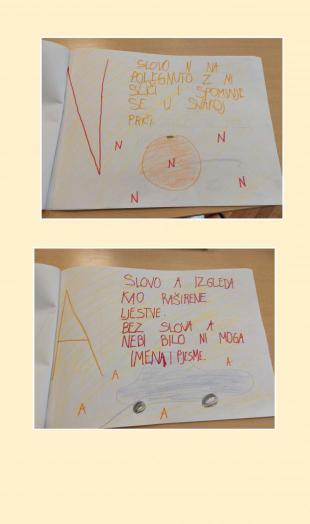 N
SLOVO N NA
POLEGNUTO Z MI
SLIČI I SPOMINJE
SE U SVAKOJ
PRIČI.
N
N
N
N
N
A
SLOVO A IZGLEDA
KAO RAŠIRENE
LJESTVE.
BEZ SLOVA A
NEBI BILO NI MOGA
IMENA I PJESME.
A
A
A
A